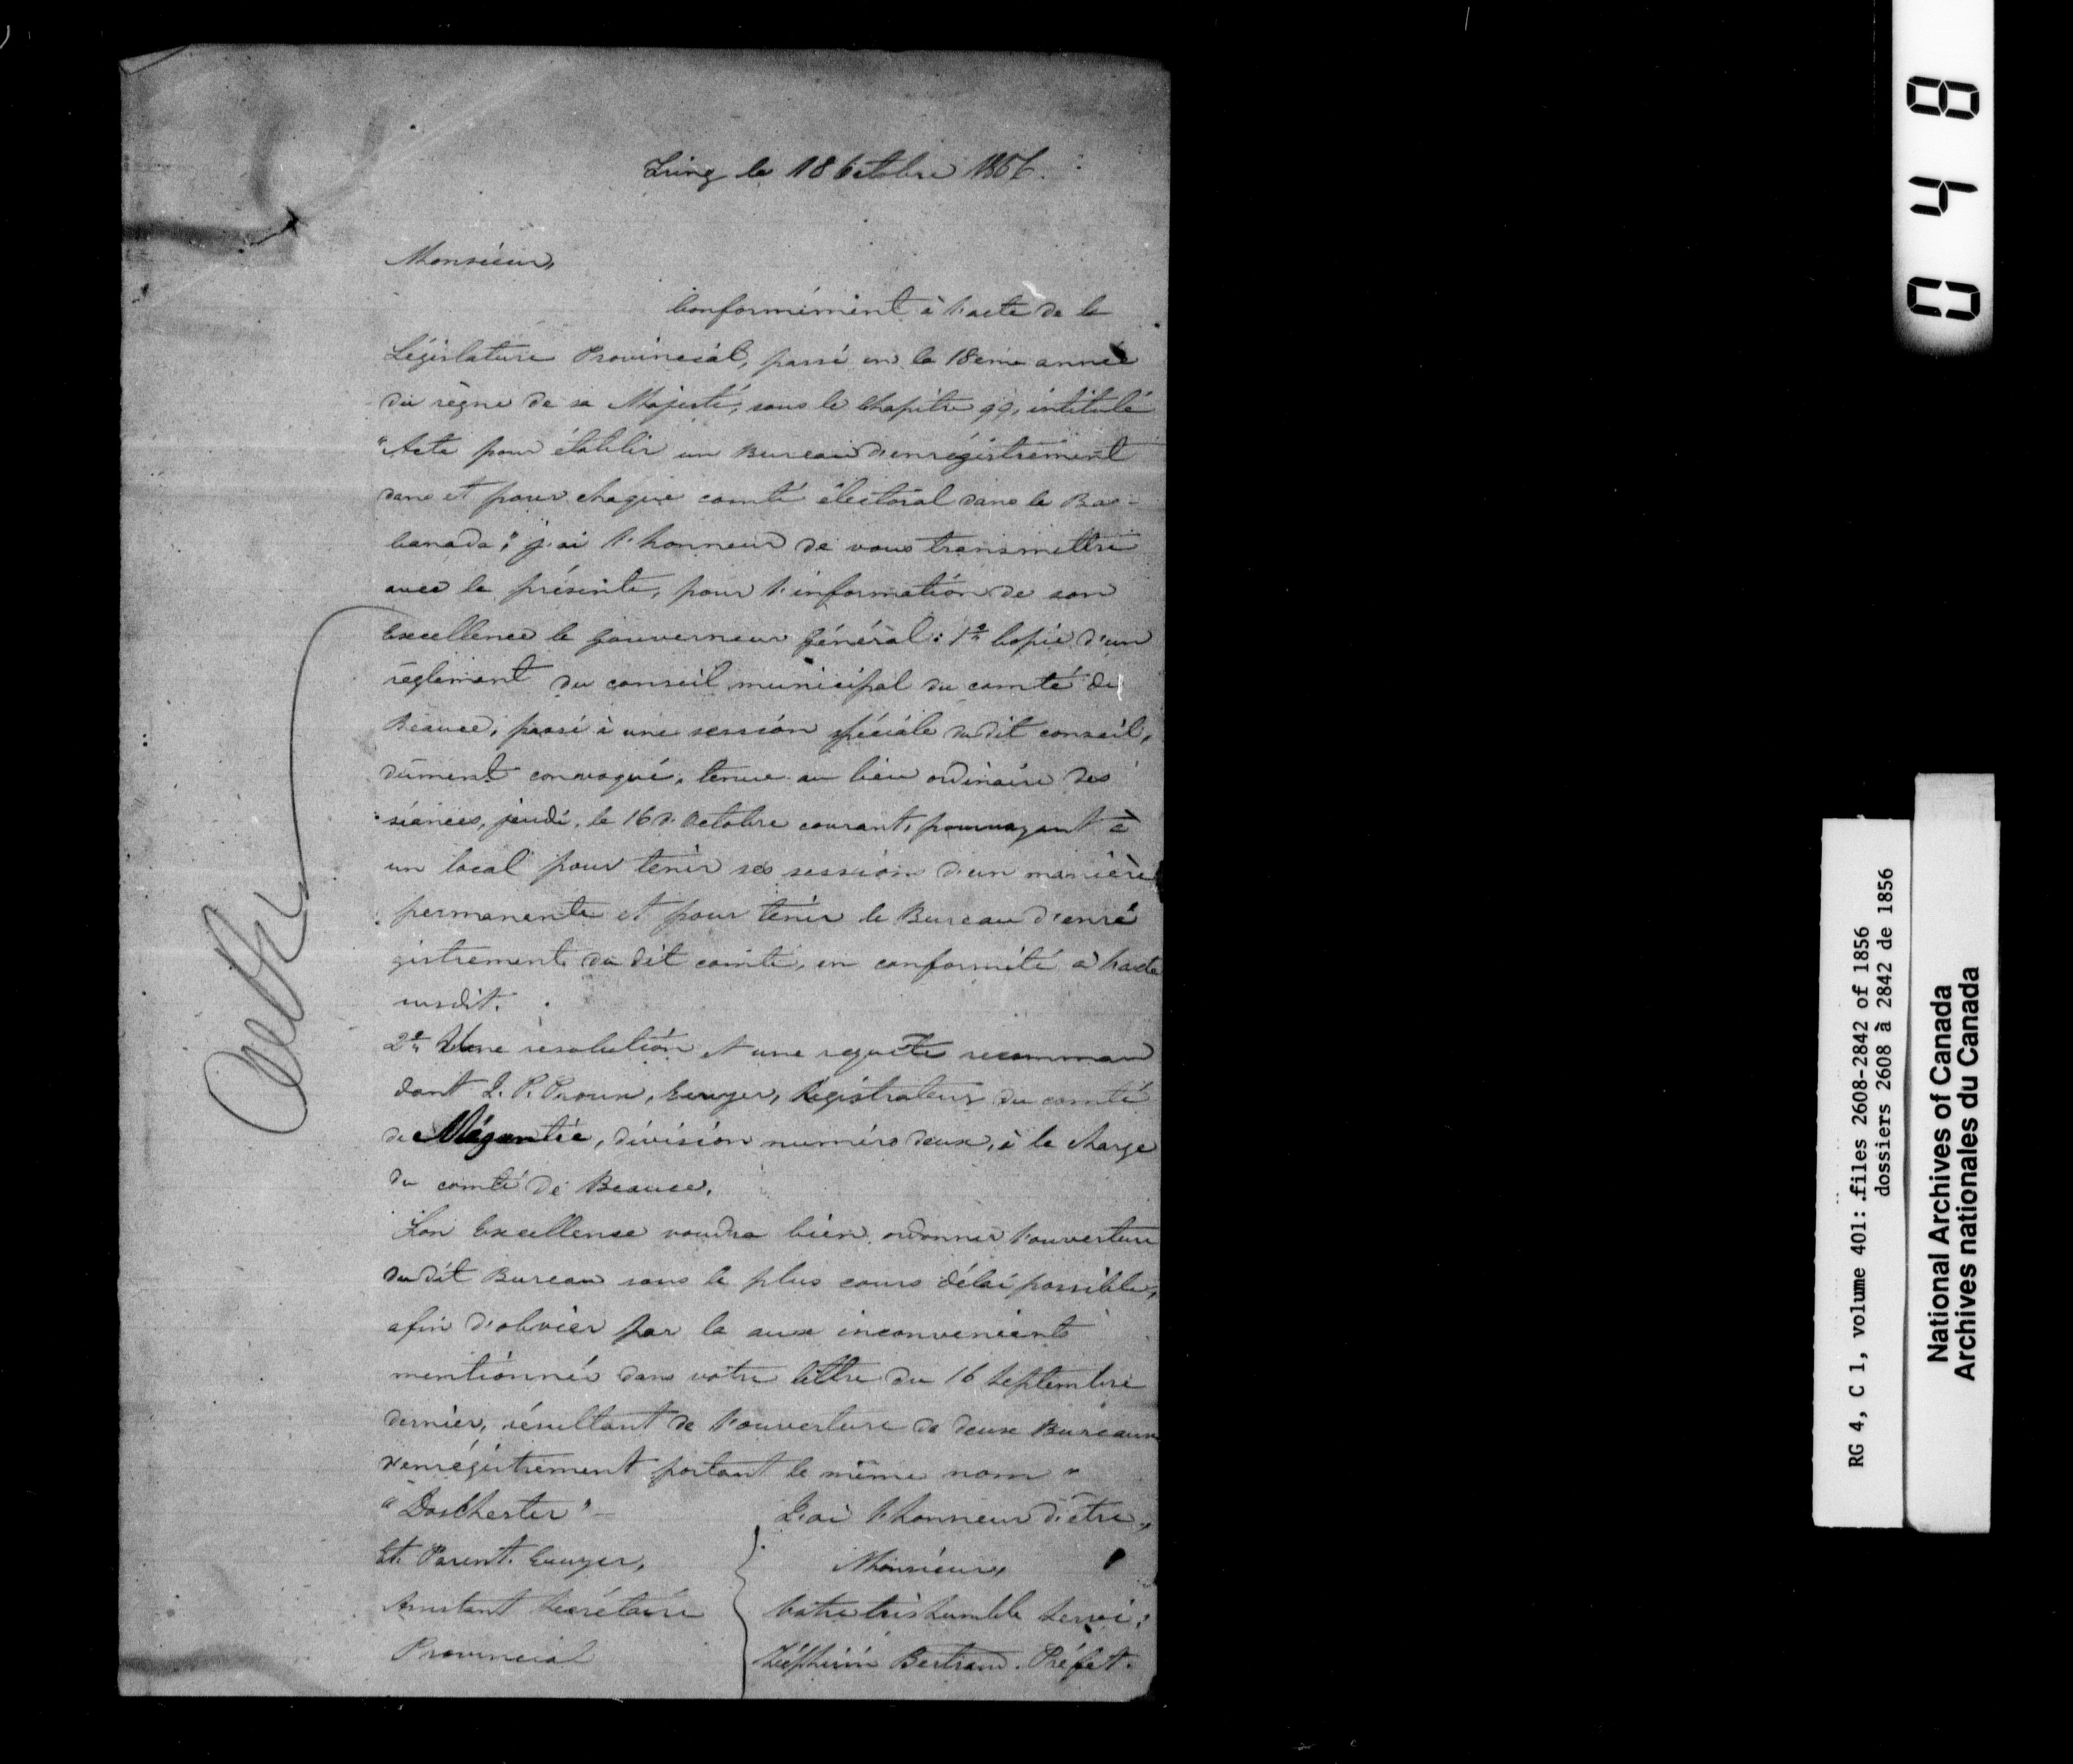 Tring le 18 Octobre 1856.
Monsieur,
Conformément à l'acte de la
Législature Provincial, passé en la 18eme année
du règne de sa Majesté, sous le Chapitre 99, intitulé
"Acte pour établir un Bureau d'enrégistrement
dans et pour chaque comté électoral dans le Bas-
Canada", j'ai l'honneur de vous transmettre
avec la présente, pour l'information de son
Excellence le gouverneur général: 1º Copie d'un
règlement du conseil municipal du comté de
Beauce, passé à une session spéciale du dit conseil,
dûment convoqué, tenue au lieu ordinaire des
séances, jeudi, le 16 d'Octobre courant, pourvoyant à
un local pour tenir ses session d'un manière
permanente et pour tenir le Bureau d'enré
gistrement du dit comté, en conformité à l'acte
susdit.
2º Une résolution et une requête recomman
dant J. P. Proux, Ecuyer, Régistrateur du comté
de Mégantic, division numéro deux, à la charge
du comté de Beauce.
Son Excellense voudra bien ordonner l'ouverture
du dit Bureau sous le plus cours délai possible,
afin d'obvier par la aux inconvenients
mentionnés dans votre lettre du 16 Septembre
dernier, résultant de l'ouverture de deux Bureaux
d'enrégistrement portant le même nom "
"Dorchester" -
J'ai l'honneur d'être,
Et. Parent. Ecuyer,
Monsieur,
Assistant Secrétaire
Votre très humble Servi:
Provincial
Zéphirin Bertrand. Préfet.
0 4 8
RG 4, C 1, volume 401: files 2608-2842 of 1856
dossiers 2608 à 2842 de 1856
National Archives of Canada
Archives nationales du Canada